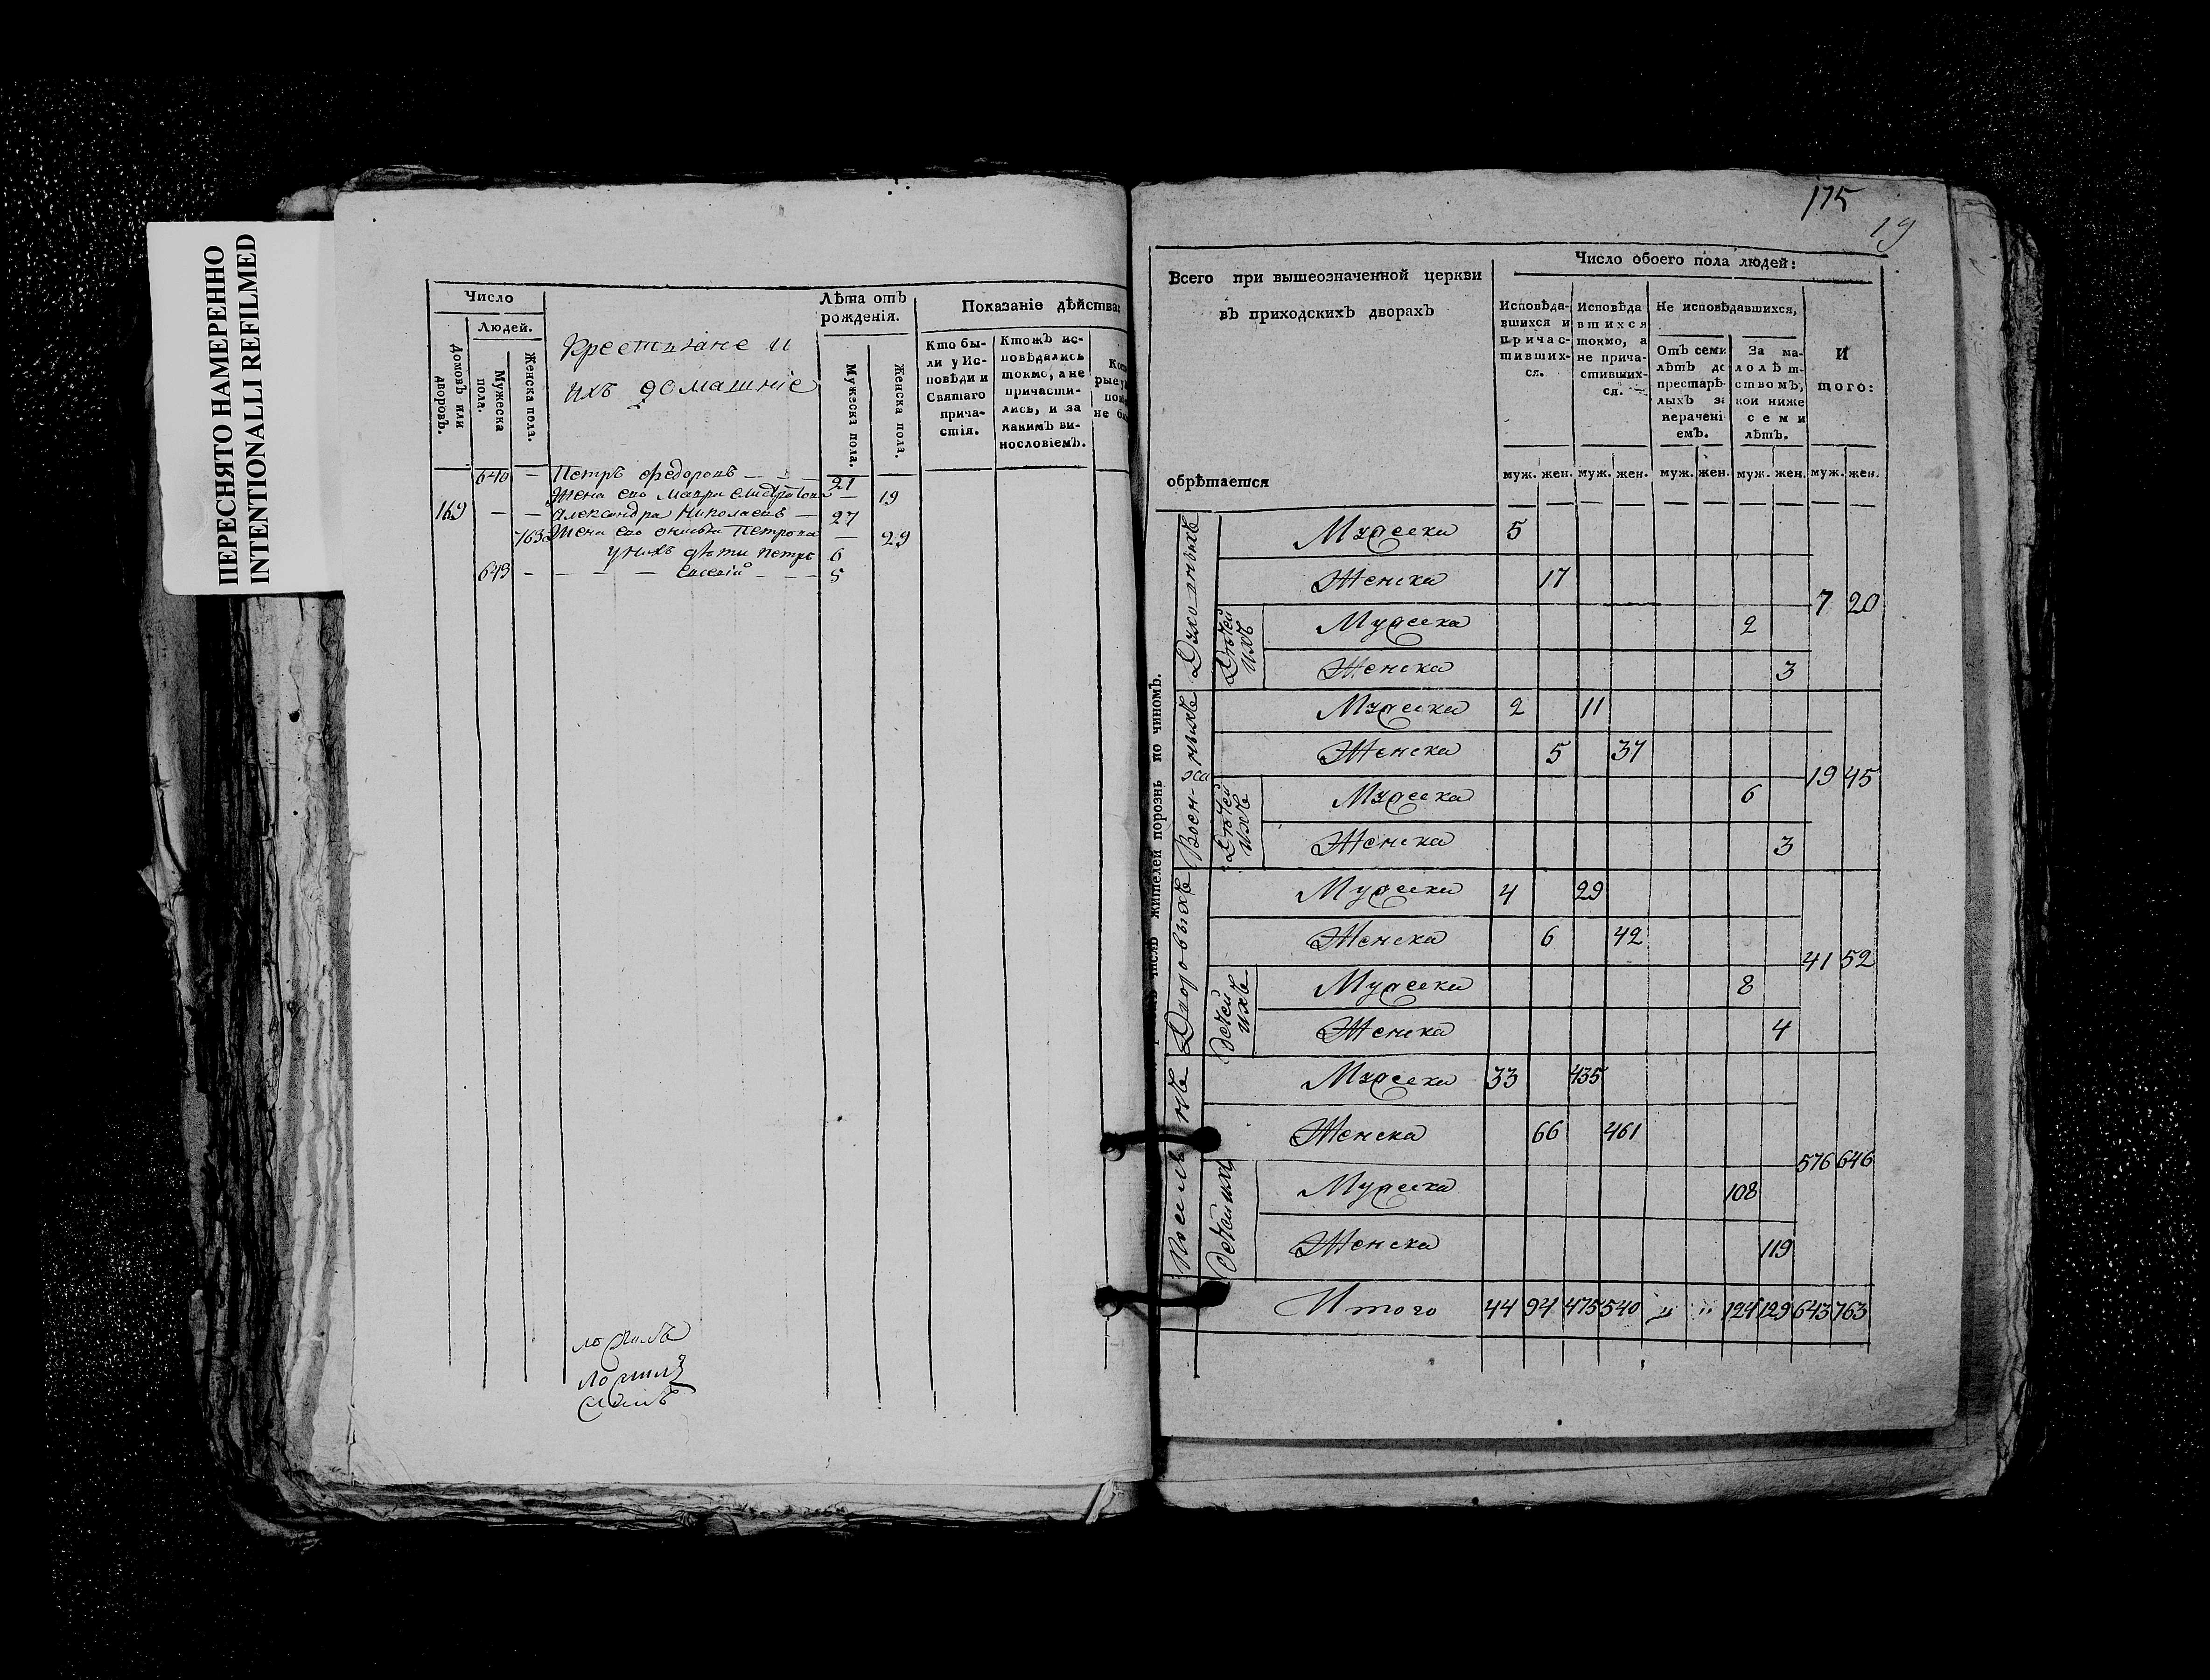 ПЕРЕСНЯТО НАМЕРЕННО
INTENTIONALLI REFILMED
Число
Людей.
Домовъ или дворовъ.
Мужеска пола.
Женска пола.
Крестьяне и
ихъ домашніе
Лѣта отъ рожденія.
Мужеска пола.
Женска пола.
Показаніе дѣйства:
Кто бы-
ли у Ис-
повѣди и
Святаго
прича-
стія.
Ктожъ ис-
повѣдались
токмо, а не
причасти-
лись, и за
какимъ ви-
нословіемъ.
640 — Петръ Федоровъ — 21
Жена его Мавра — 19
169 — — Александра Николаевъ — 27
763 Жена его Петрова — 29
у нихъ дѣти Петръ 6
643 — — — — 5
175
19
Всего при вышеозначенной церкви
въ приходскихъ дворахъ
обрѣтается
Число обоего пола людей:
Исповѣда-
вшихся и
причас-
тивших-
ся.
Исповѣда
вшихся
токмо, а
не прича-
стивших-
ся.
Не исповѣдавшихся,
Отъ семи
лѣтъ до
престарѣ-
лыхъ за
нерачені-
емъ.
За ма-
лолѣт-
ствомъ,
кои ниже
семи
лѣтъ.
И
того:
муж. жен. муж. жен. муж. жен. муж. жен. муж. жен.
жителей порознь по чиномъ.
Духовныхъ
Мужеска 5
Женска 17
7 20
Дѣтей ихъ
Мужеска 2
Женска 3
Мужеска 2 11
Женска 5 37
19 45
Дѣтей ихъ
Мужеска 6
Женска 3
Дворовыхъ
Мужеска 4 29
Женска 6 42
41 52
Детей ихъ
Мужеска 8
Женска 4
Мужеска 33 435
Женска 66 461
576 646
Детей ихъ
Мужеска 108
Женска 119
Итого 44 94 475 540 " " 124 129 643 763